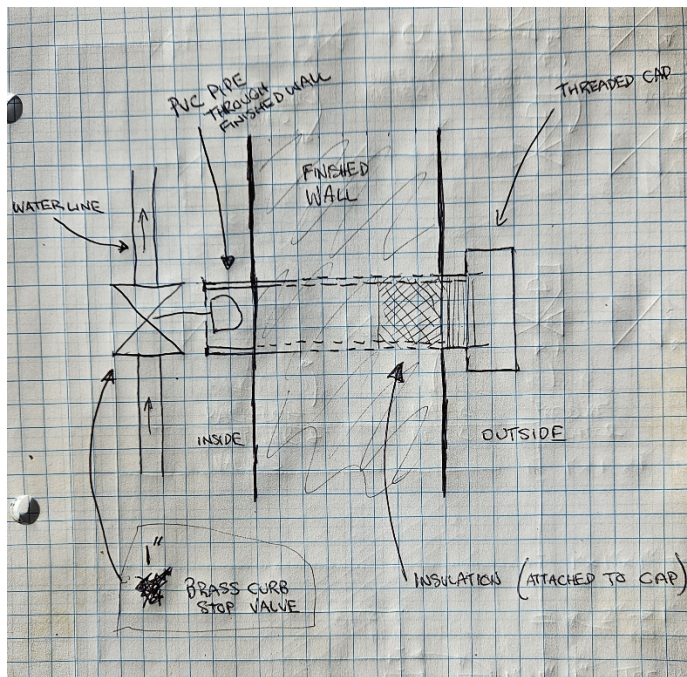 PVC PIPE
THROUGH
FINISHED WALL
THREADED CAP
FINISHED
WALL
WATERLINE
INSIDE
OUTSIDE
1"
BRASS CURB
STOP VALVE
INSULATION (ATTACHED TO CAP)